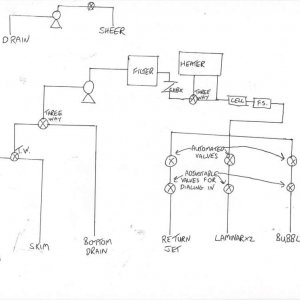 DRAIN
SHEER
FILTER
HEATER
THREE
WAY
THREE
WAY
CELL
F.S.
T.W.
AUTOMATED
VALVES
ADJUSTABLE
VALVES FOR
DIALING IN
SKIM
BOTTOM
DRAIN
RETURN
JET
LAMINARX2
BUBBL